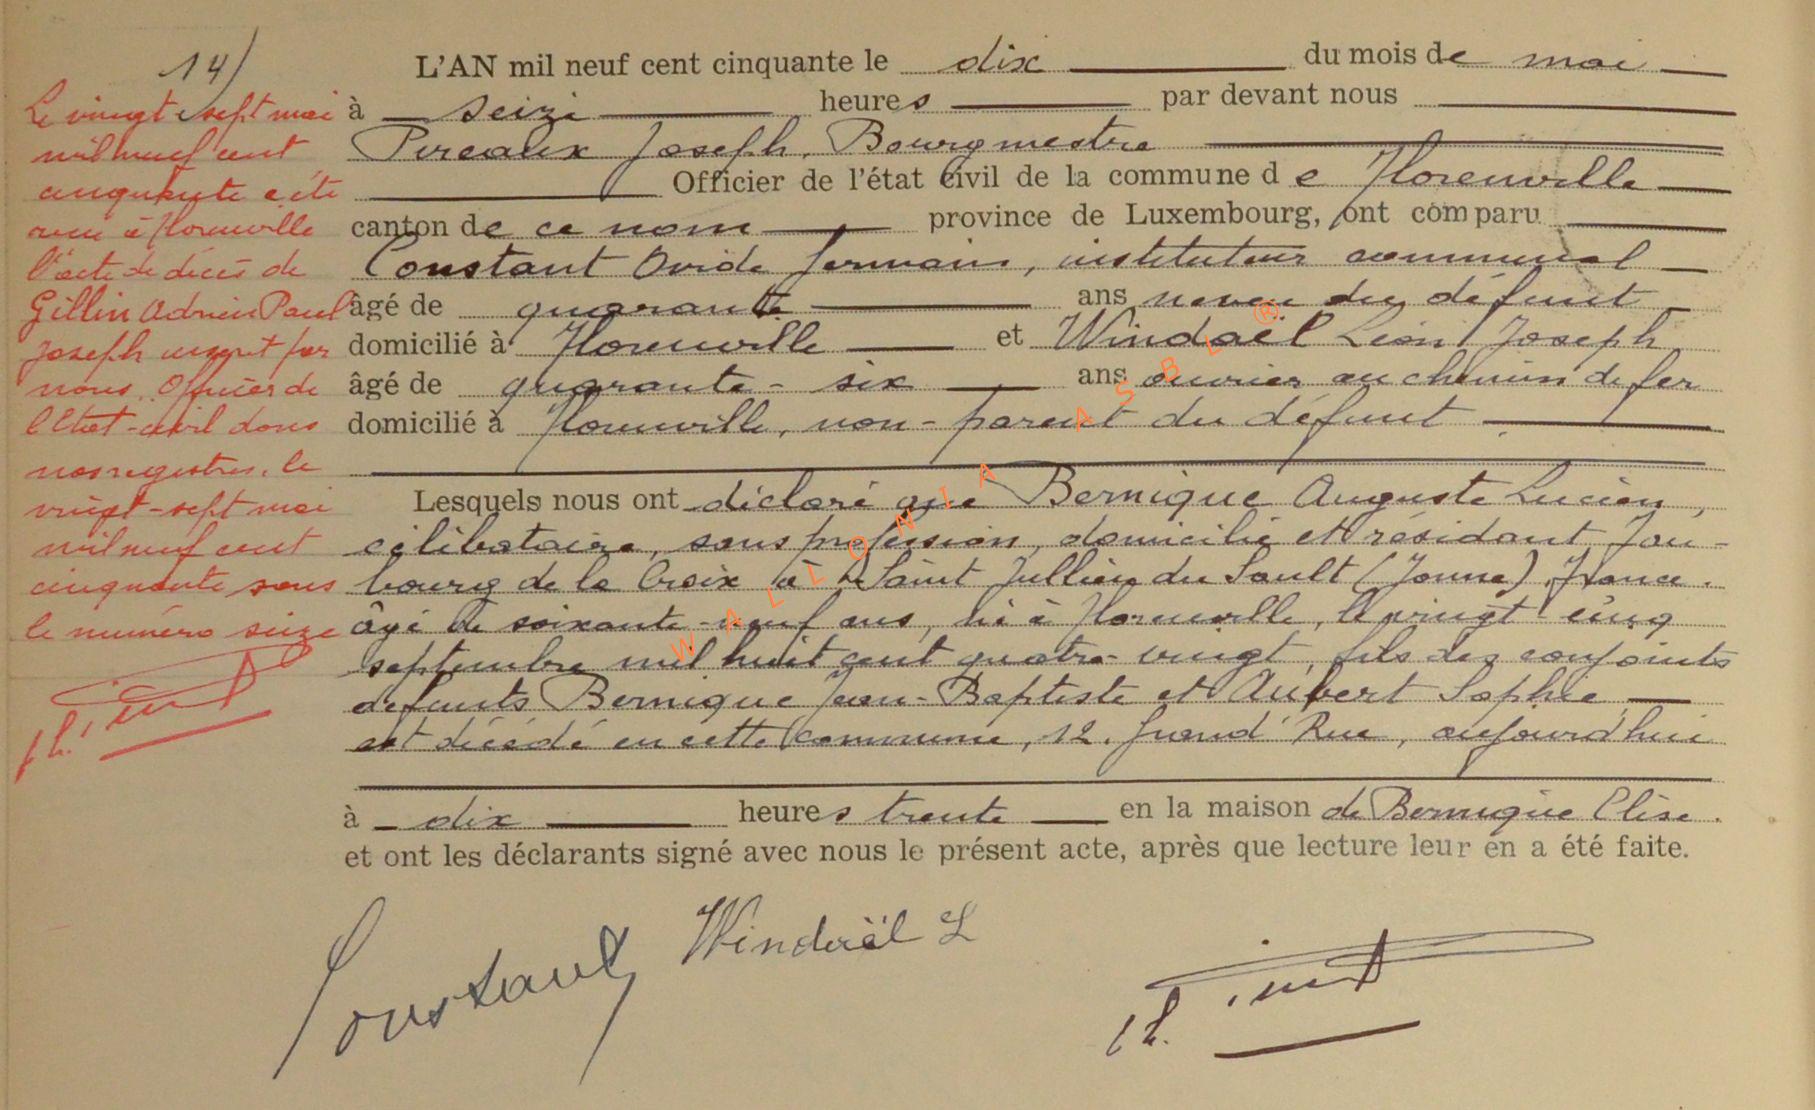 14)
Le vingt sept mai
mil neuf cent
cinquante a été
à Florenville
l'acte de décès de
Gillin Adrien Paul
Joseph inscrit par
nous Officier de
l'Etat-civil dans
nos registres, le
vingt-sept mai
mil neuf cent
cinquante sous
le numéro seize
L'AN mil neuf cent cinquante le dix du mois de mai
à seize heures par devant nous
Pireaux Joseph, Bourgmestre
Officier de l'état civil de la commune de Florenville
canton de ce nom province de Luxembourg, ont comparu
Constant Ovide Germain, instituteur communal
âgé de quarante ans neveu du défunt
domicilié à Florenville et Windaël Léon Joseph
âgé de quarante-six ans ouvrier au chemin de fer
domicilié à Florenville, non-parent du défunt
Lesquels nous ont déclaré que Bernique Auguste Lucien,
célibataire, sans profession, domicilié et résidant Fau-
bourg de la Croix à Saint Jullien du Sault (Yonne), France.
âgé de soixante-neuf ans, né à Florenville, le vingt cinq
septembre mil huit cent quatre-vingt, fils des conjoints
défunts Bernique Jean-Baptiste et Aubert Sophie,
est décédé en cette commune, 12. Grand'Rue, aujourd'hui
à dix heures trente en la maison de Bernique Elise.
et ont les déclarants signé avec nous le présent acte, après que lecture leur en a été faite.
Constant Windaël L
WALLONIA ASBL ®